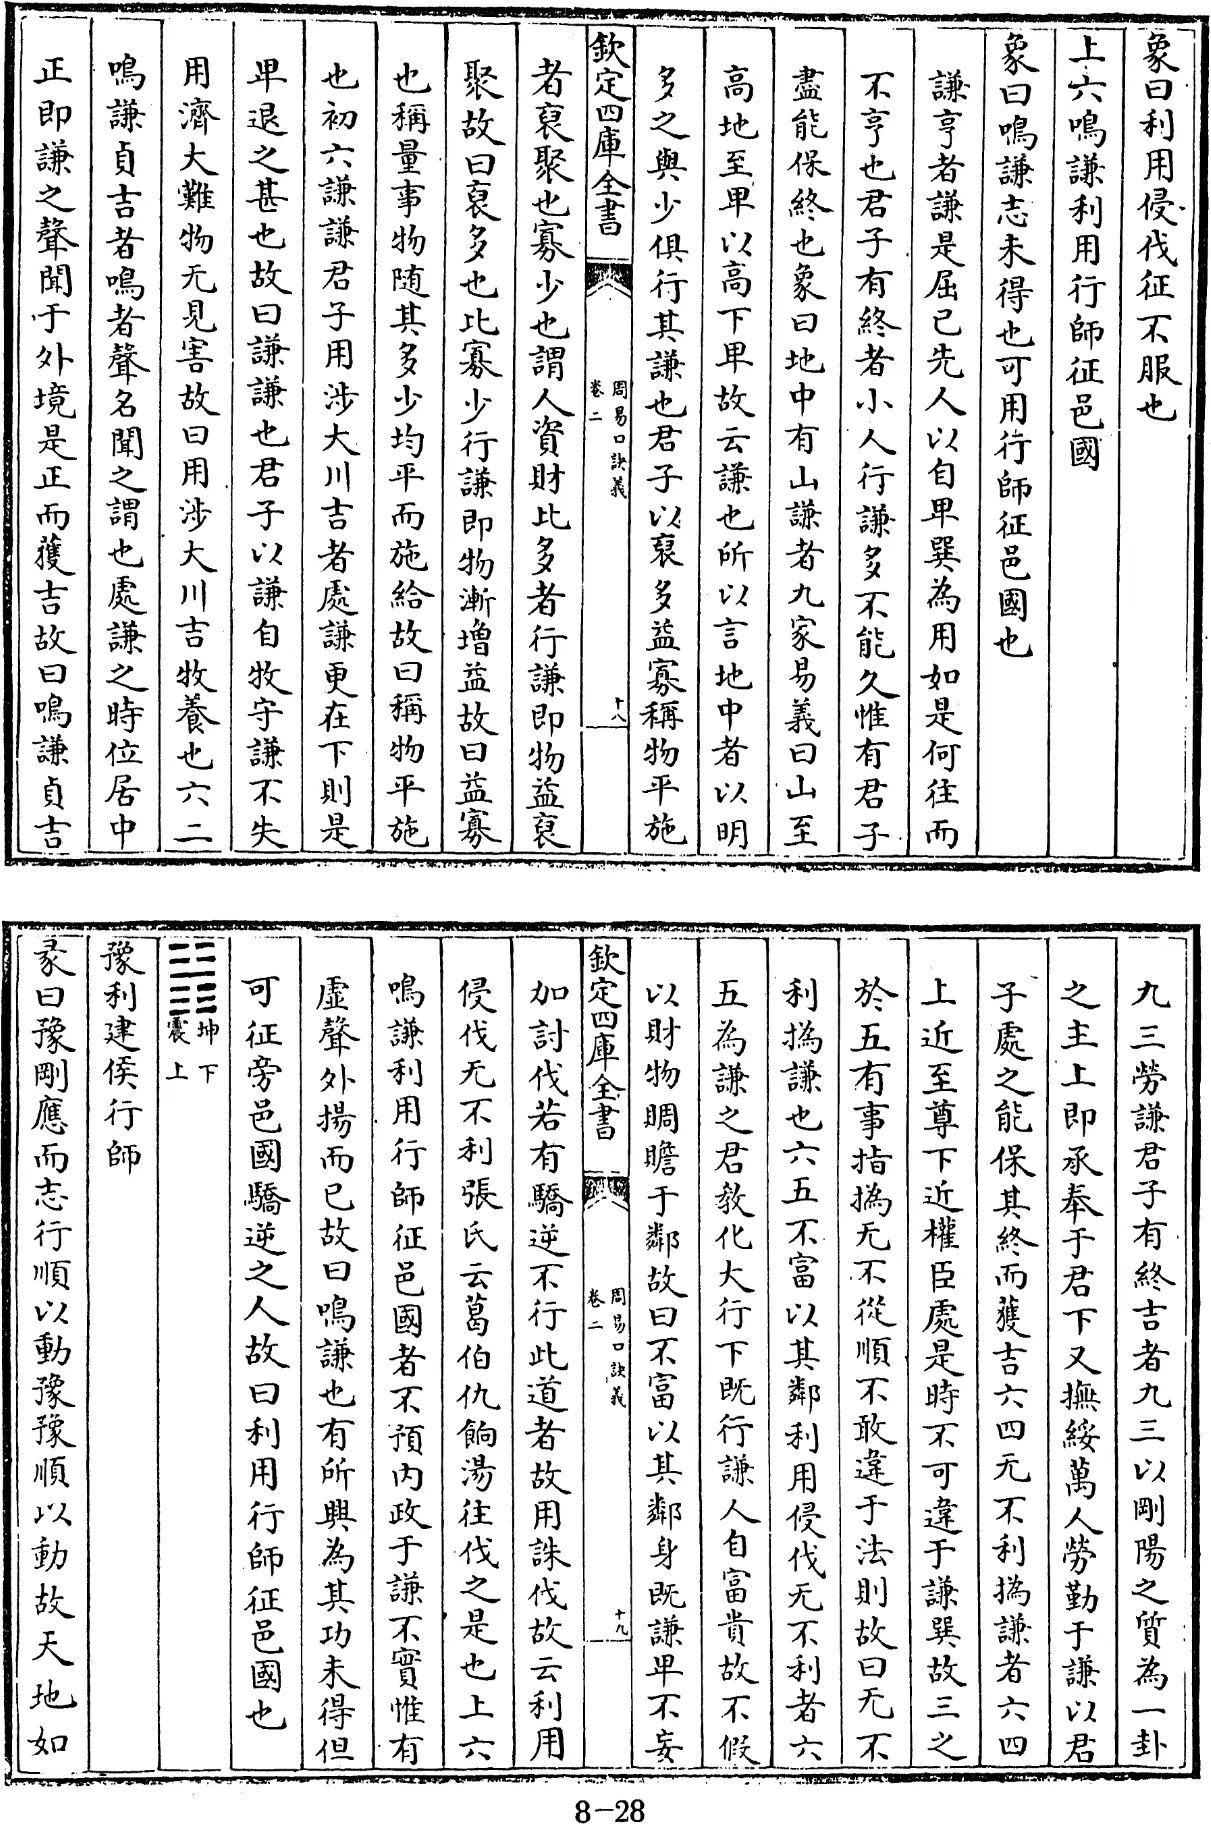 象曰利用侵伐征不服也
上六鳴謙利用行師征邑國
象曰鳴謙志未得也可用行師征邑國也
謙亨者謙是屈己先人以自卑巽為用如是何往而
不亨也君子有終者小人行謙多不能久惟有君子
盡能保終也象曰地中有山謙者九家易義曰山至
高地至卑以高下卑故云謙也所以言地中者以明
多之與少俱行其謙也君子以裒多益寡稱物平施
欽定四庫全書
周易口訣義
卷二
十八
者裒聚也寡少也謂人資財比多者行謙即物益裒
聚故曰裒多也比寡少行謙即物漸增益故曰益寡
也稱量事物隨其多少均平而施給故曰稱物平施
也初六謙謙君子用涉大川吉者處謙更在下則是
卑退之甚也故曰謙謙也君子以謙自牧守謙不失
用濟大難物无見害故曰用涉大川吉牧養也六二
鳴謙貞吉者鳴者聲名聞之謂也處謙之時位居中
正即謙之聲聞于外境是正而獲吉故曰鳴謙貞吉
九三勞謙君子有終吉者九三以剛陽之質為一卦
之主上即承奉于君下又撫綏萬人勞勤于謙以君
子處之能保其終而獲吉六四无不利撝謙者六四
上近至尊下近權臣處是時不可違于謙巽故三之
於五有事指撝无不從順不敢違于法則故曰无不
利撝謙也六五不富以其鄰利用侵伐无不利者六
五為謙之君教化大行下既行謙人自富貴故不假
以財物賙贍于鄰故曰不富以其鄰身既謙卑不妄
欽定四庫全書
周易口訣義
卷二
十九
加討伐若有驕逆不行此道者故用誅伐故云利用
侵伐无不利張氏云葛伯仇餉湯往伐之是也上六
鳴謙利用行師征邑國者不預內政于謙不實惟有
虛聲外揚而已故曰鳴謙也有所興為其功未得但
可征旁邑國驕逆之人故曰利用行師征邑國也
坤下
震上
豫利建侯行師
彖曰豫剛應而志行順以動豫豫順以動故天地如
8-28